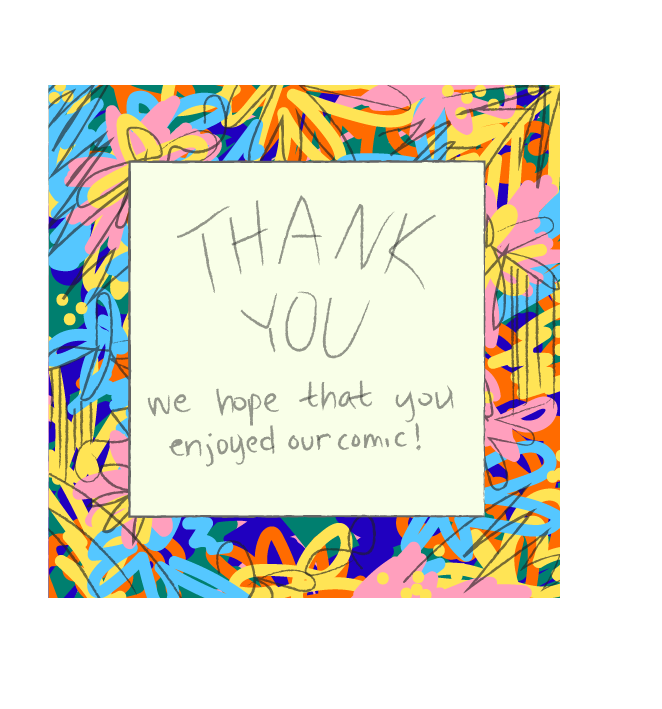 THANK
YOU
we hope that you
enjoyed our comic!